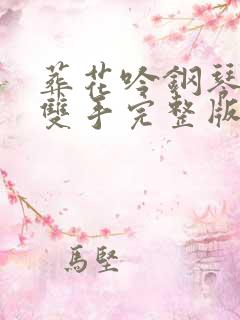 葬花吟鋼琴
雙手完整版
馬堅